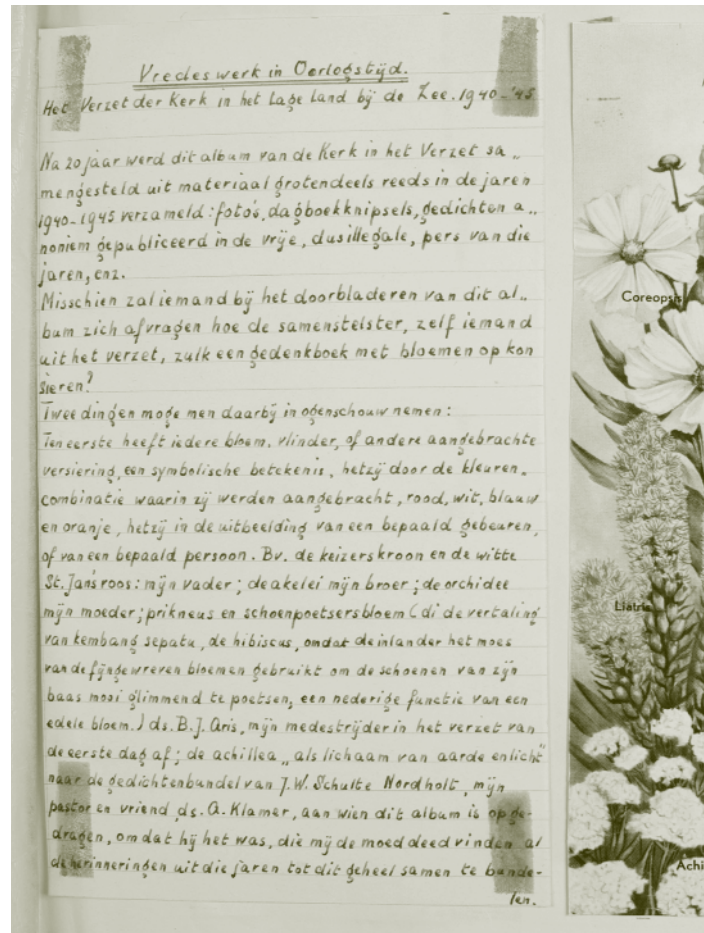 Vredeswerk in Oorlogstijd.
Het Verzet der Kerk in het Lage land bij de Zee. 1940-'45
Na 20 jaar werd dit album van de Kerk in het Verzet sa„
mengesteld uit materiaal grotendeels reeds in de jaren
1940-1945 verzameld: foto's, dagboekknipsels, gedichten a„
noniem gepubliceerd in de vrije, dus illegale, pers van die
jaren, enz.
Misschien zal iemand bij het doorbladeren van dit al„
bum zich afvragen hoe de samenstelster, zelf iemand
uit het verzet, zulk een gedenkboek met bloemen op kon
sieren?
Twee dingen moge men daarbij in ogenschouw nemen:
Ten eerste heeft iedere bloem, vlinder, of andere aangebrachte
versiering, een symbolische betekenis, hetzij door de kleuren„
combinatie waarin zij werden aangebracht, rood, wit, blauw
en oranje, hetzij in de uitbeelding van een bepaald gebeuren,
of van een bepaald persoon. Bv. de keizerskroon en de witte
St. Jansroos: mijn vader; de akelei mijn broer; de orchidee
mijn moeder; prikneus en schoenpoetsersbloem (di de vertaling
van kembang sepatu, de hibiscus, omdat de inlander het moes
van de fijngewreven bloemen gebruikt om de schoenen van zijn
baas mooi glimmend te poetsen, een nederige functie van een
edele bloem.) ds. B.J. Aris, mijn medestrijder in het verzet van
de eerste dag af; de achillea „als lichaam van aarde en licht"
naar de gedichtenbundel van J.W. Schulte Nordholt, mijn
pastor en vriend ds. A. Klamer, aan wien dit album is opge-
dragen, omdat hij het was, die mij de moed deed vinden al
de herinneringen uit die jaren tot dit geheel samen te bunde-
len.
Coreopsis
Liatris
Achi